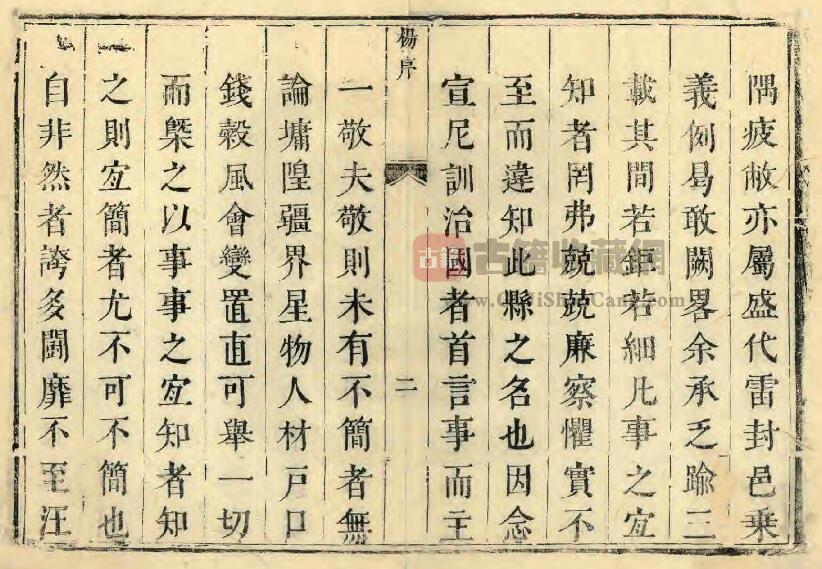 隅疲敝亦屬盛代雷封邑乗
義例曷敢闕畧余承乏踰三
載其間若鉅若細凡事之宜
知者罔弗兢兢廉察懼實不
至而違知此縣之名也因念
宣尼訓治國者首言事而主
楊序
二
一敬夫敬則未有不簡者無
論墉隍疆界星物人材戸口
錢穀風會變置直可舉一切
而槩之以事事之宜知者知
之則宜簡者尤不可不簡也
自非然者誇多鬬靡不至汪
古籍收藏網
www.GuJiShouCang.com